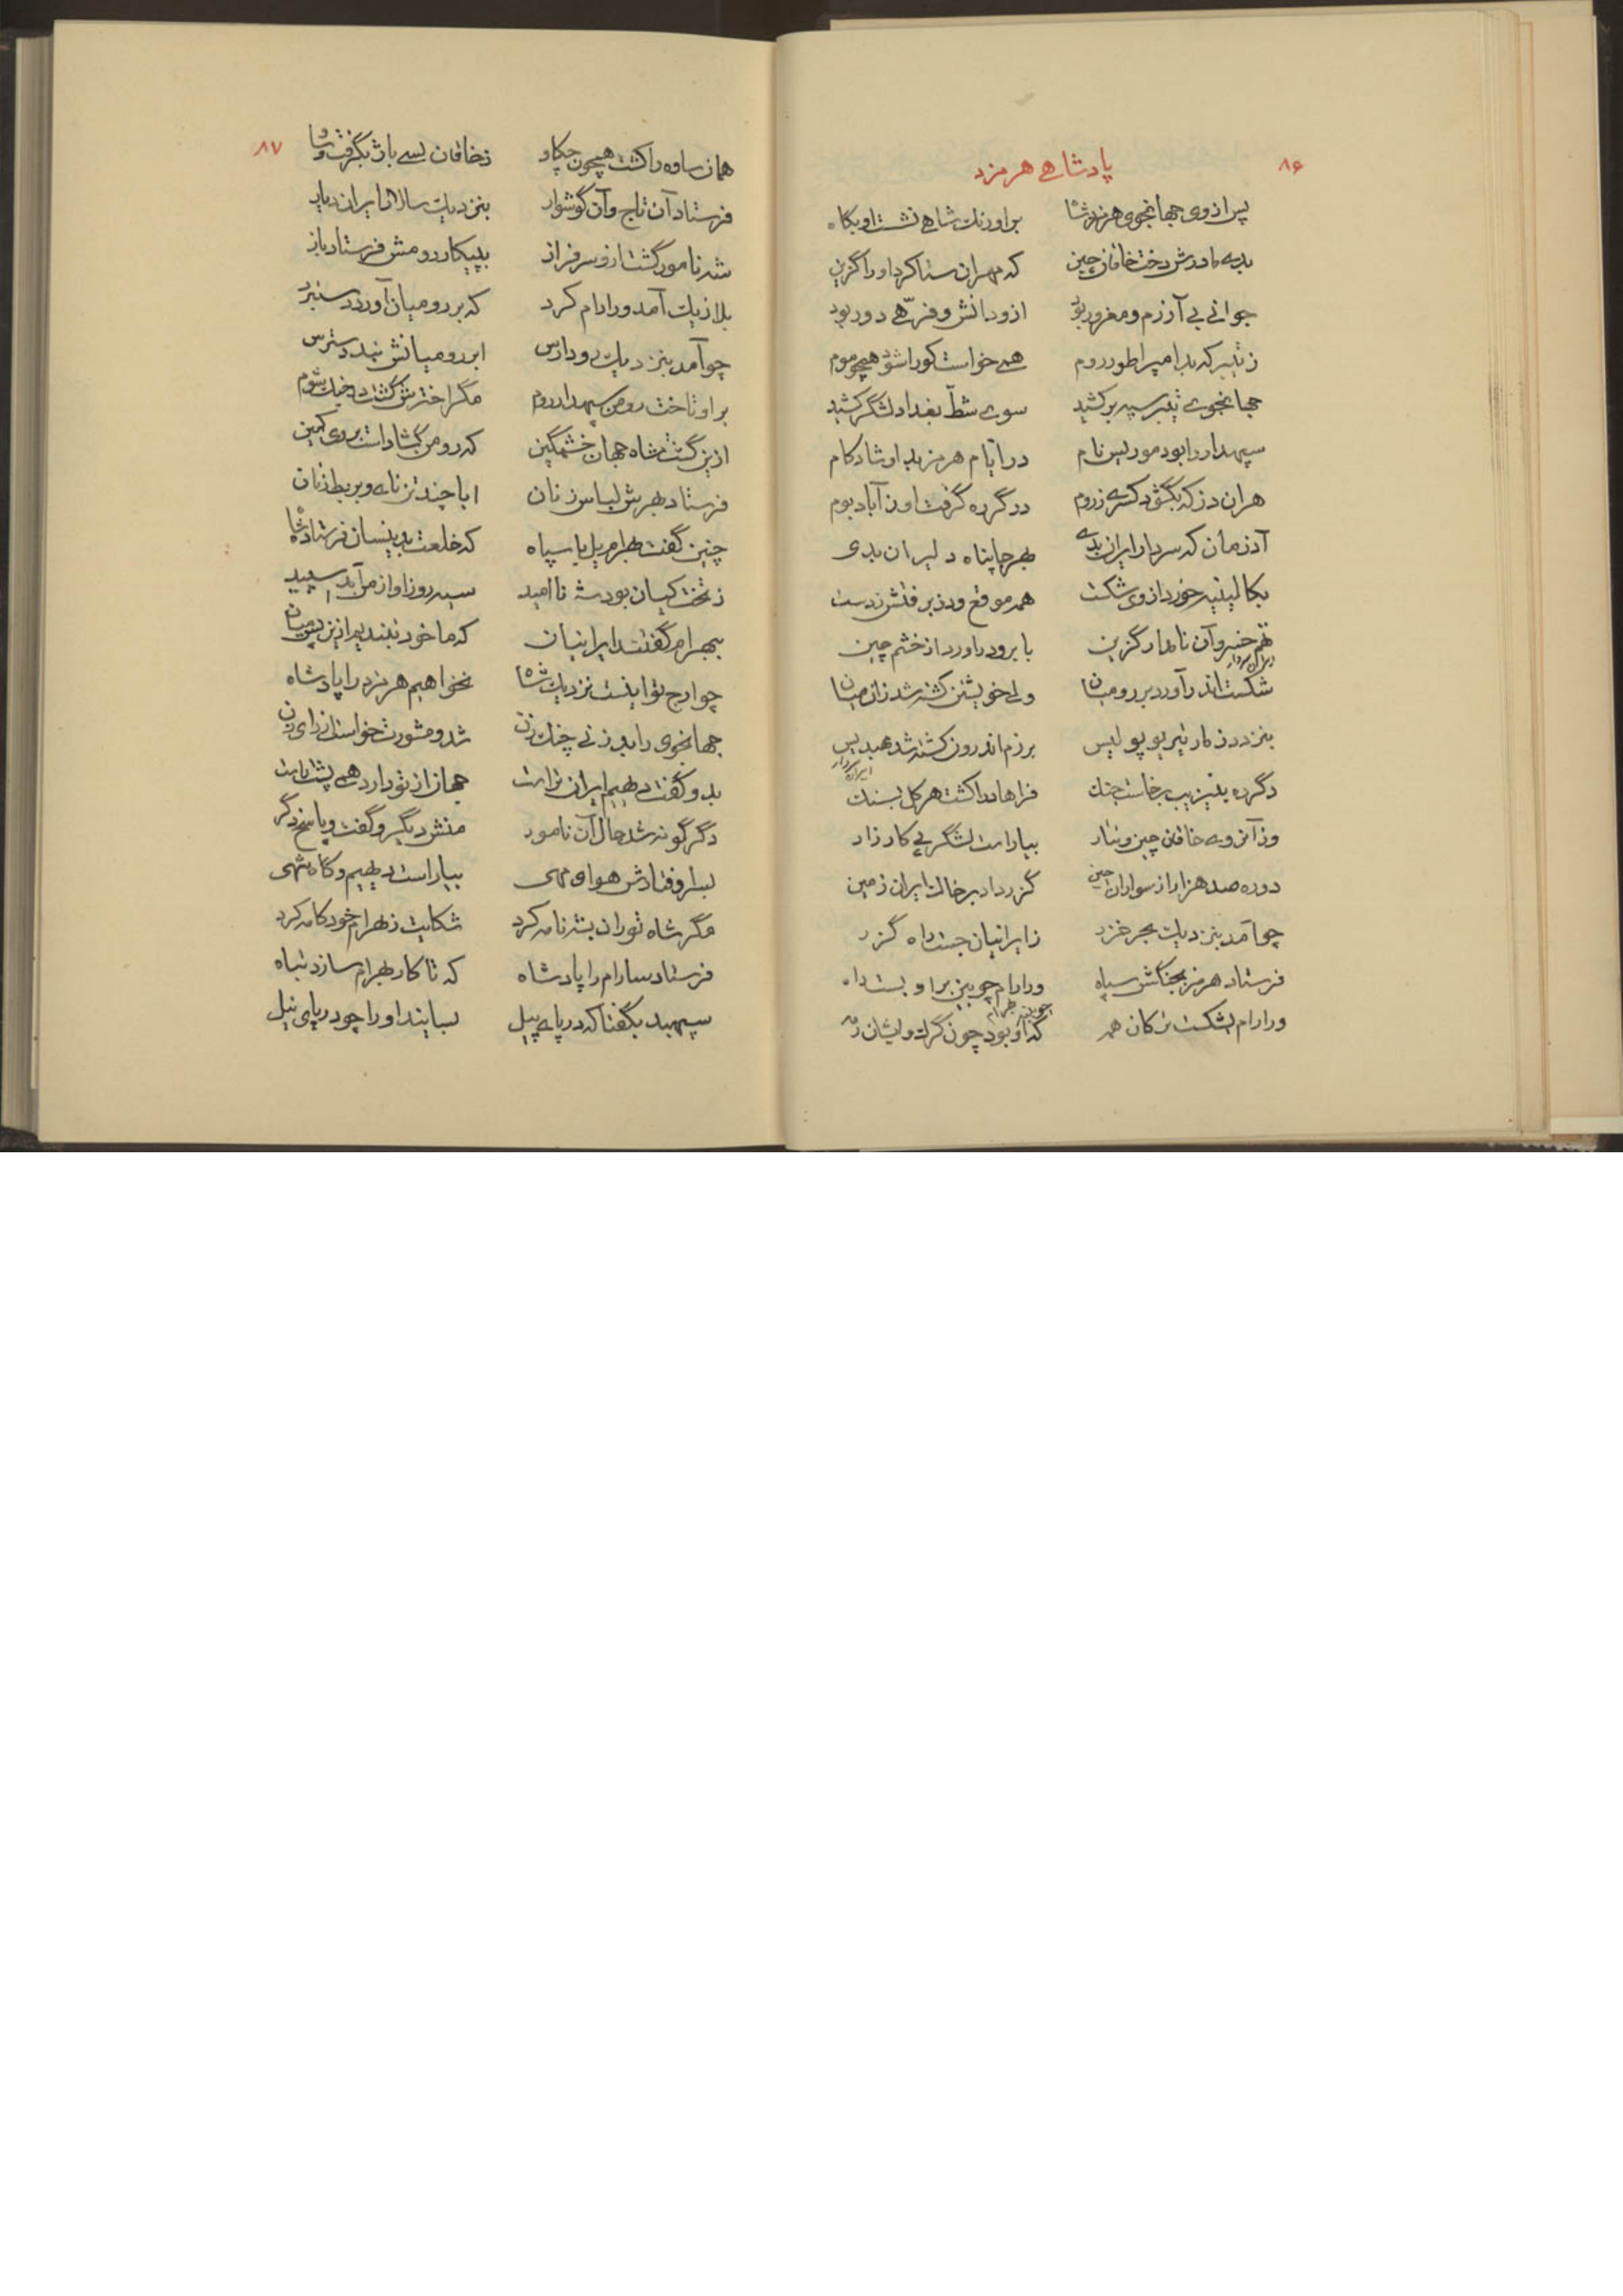 ۸۶
پادشاهی هرمزد
پس از وی جهانجوی هرمزد شاه بر اورنگ شاهی نشست او بگاه
بدی مادرش دخت خاقان چین که مهران ستا کرد او را گزین
جوانی بی آزرم و مغرور بود ازو دانش و فرّهی دور بود
ز تیبر که بد امپراطور روم همی خواست کو را شود همچو موم
جهانجوی تیبر سپه برکشید سوی شطّ بغداد لشگر کشید
سپهدار را بود موریس نام در ایام هرمز بد او شادکام
هران دز که بگشود کسری ز روم دگر ره گرفت او ز آباد بوم
آدرمان که سردار ایران بدی بهر جا پناه دلیران بدی
بکالینیه خورد از وی شکست همه موقع ودز برفتش ز دست
تهم خسرو آن نامدار گزین بابرو درآورد از خشم چین
شکست اندر آورد بر رومیان ولی خویشتن کشته شد زان میان
بنزد دز مار تیریو پولیس برزم اندرون کشته شد مهبدیس
دگر ره بنیزیب برخاست جنگ فراهاد را کشت هرکل بسنگ
وز آنروی خاقان چین و تتار بیاراست لشگر پی کارزار
دو ره صد هزار از سواران چین گزر داد بر خاک ایران زمین
چو آمد بنزدیک بحر خزر ز ایرانیان جست راه گزر
فرستاد هرمز بجنگش سپاه ورارام چوبین بر او بست راه
ورارام بشکست ترکان همه که او بود چون گرگ و ایشان رمه
۸۷
همان ساوه را کشت همچون چکاو ز خاقان بسی باژ بگرفت و ساو
فرستاد آن تاج و آن گوشوار بنزدیک سالار ایران دیار
شه نامور گشت ازو سرفراز بپیکار رومش فرستاد باز
بلازیک آمد ورارام کرد که بر رومیان آورد دستبرد
چو آمد بنزدیک رود ارس ابر رومیانش نبد دسترس
بر او تاخت رومن سپهدار روم مگر اخترش گشته در جنگ شوم
ازین گشت شاه جهان خشمگین که رومن گشاد است بر وی کمین
فرستاد بهرش لباس زنان ابا چند تن نای و بربط زنان
چنین گفت بهرام یل با سپاه که خلعت بدینسان فرستاد شاه
ز تخت کیان بود شه ناامید سیه روز او از من آید سپید
ببهرام گفتند ایرانیان که ما خود نبندیم ازین پس میان
چو ارج تو اینست نزدیک شاه نخواهیم هرمزد را پادشاه
جهانجوی را بد زنی چنگ زن شد و مشورت خواست از رای زن
بدو گفت دیهیم ایران تراست جهان از تو دارد همی پشت راست
دگرگونه شد حال آن نامور منش دیگر و گفت و پاسخ دگر
بسر اوفتادش هوای مهی بیاراست دیهیم و گاه شهی
مگر شاه توران بشه نامه کرد شکایت ز بهرام خودکامه کرد
فرستاد سارام را پادشاه که تا کار بهرام سازد تباه
سپهبد بگفتا که در پای پیل بسایند او را چو دریای نیل